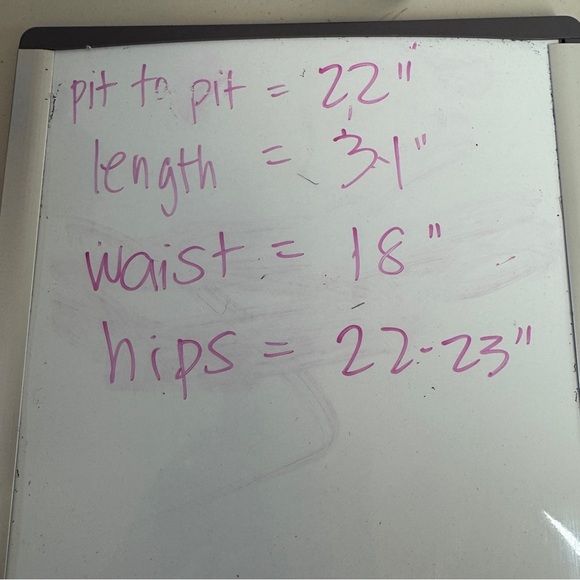 pit to pit = 22"
length = 31"
waist = 18"
hips = 22-23"